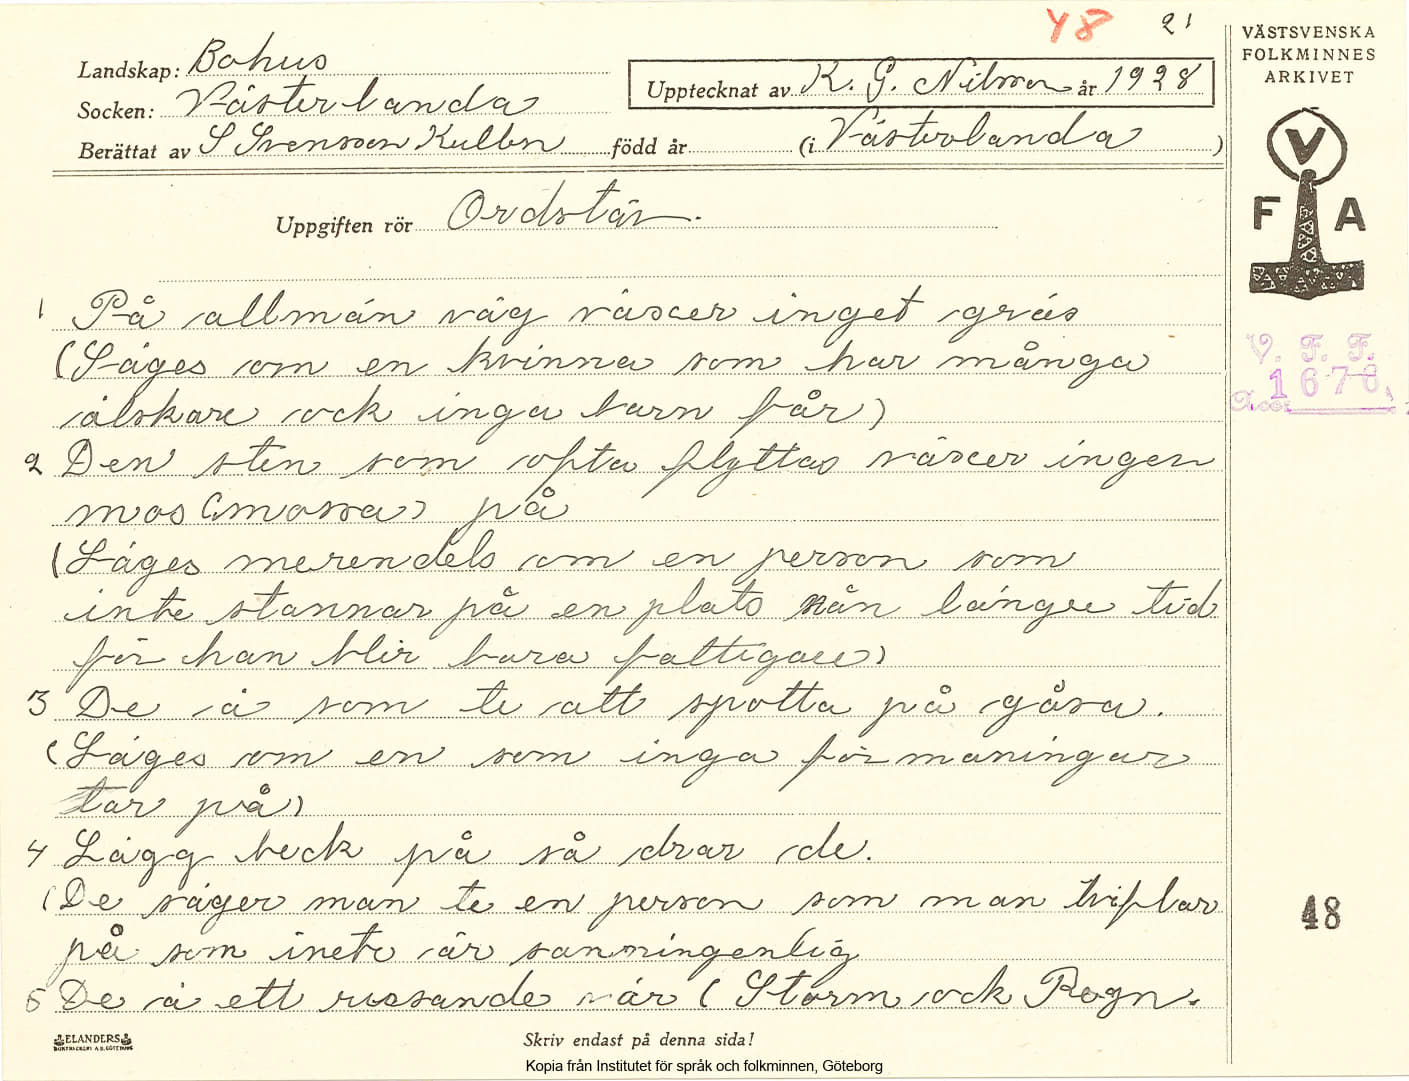 48 21
VÄSTSVENSKA
FOLKMINNES
ARKIVET
Landskap: Bohus
Upptecknat av K. G. Nilsson år 1928
Socken: Västerlanda
Berättat av S Svensson Kullen född år (i Västerlanda)
V
F A
Uppgiften rör Ordstäv.
1 På allmän väg växer inget gräs
(Säges om en kvinna som har många
älskare ock inga barn får)
V. F. F.
Acc. 1678
2 Den sten som ofta flyttas växer ingen
mos (mossa) på
(Säges merendels om en person som
inte stannar på en plats nån längre tid
för han blir bara fattigare)
3 De ä som te att spotta på gåsa.
(Säges om en som inga förmaningar
tar på)
4 Lägg beck på så drar de.
(De säger man te en person som man tviflar
på som inete är sanningenlig
48
5 De ä ett rosande vär (Storm ock Regn.
ELANDERS
BOKTRYCKERI A.B. GÖTEBORG
Skriv endast på denna sida!
Kopia från Institutet för språk och folkminnen, Göteborg